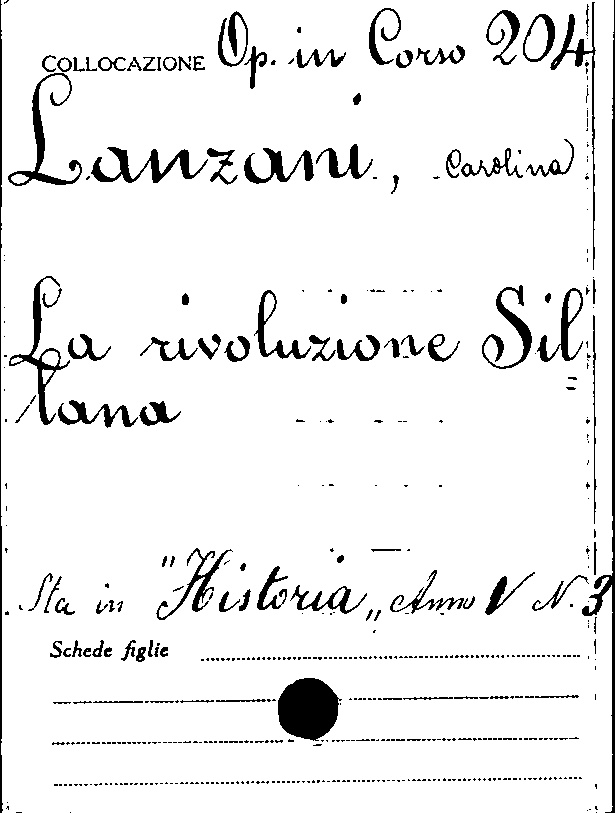 COLLOCAZIONE Op. in Corso 204
Lanzani, Carolina
La rivoluzione Sil=
lana
Sta in "Historia„ Anno V N. 3
Schede figlie